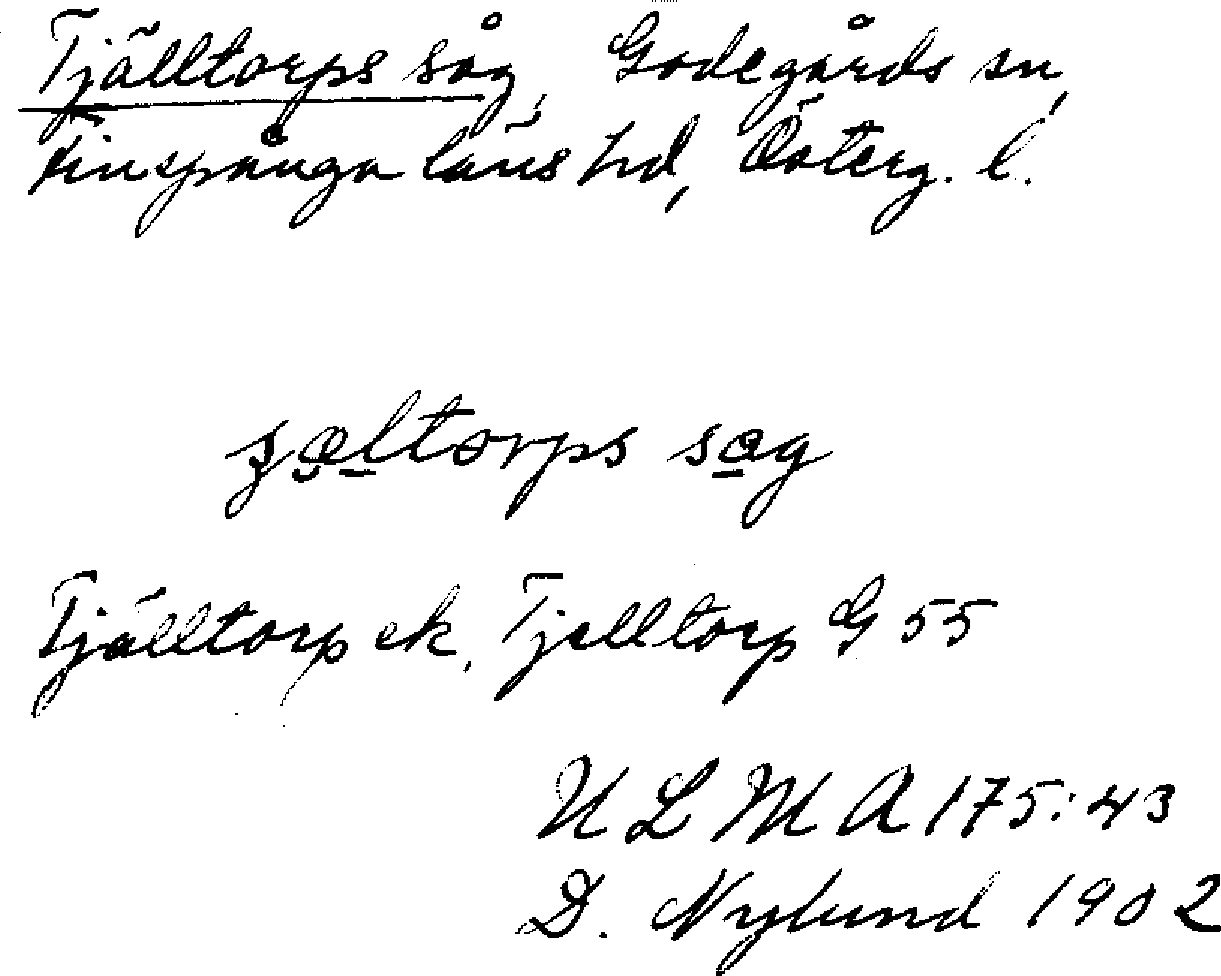 Tjälltorps såg, Godegårds sn,
Finspånga läns hd, Österg. l.
sæltorps sag
Tjälltorp ek, Tjelltorp G 55
ULMA 175:43
D. Nylund 1902